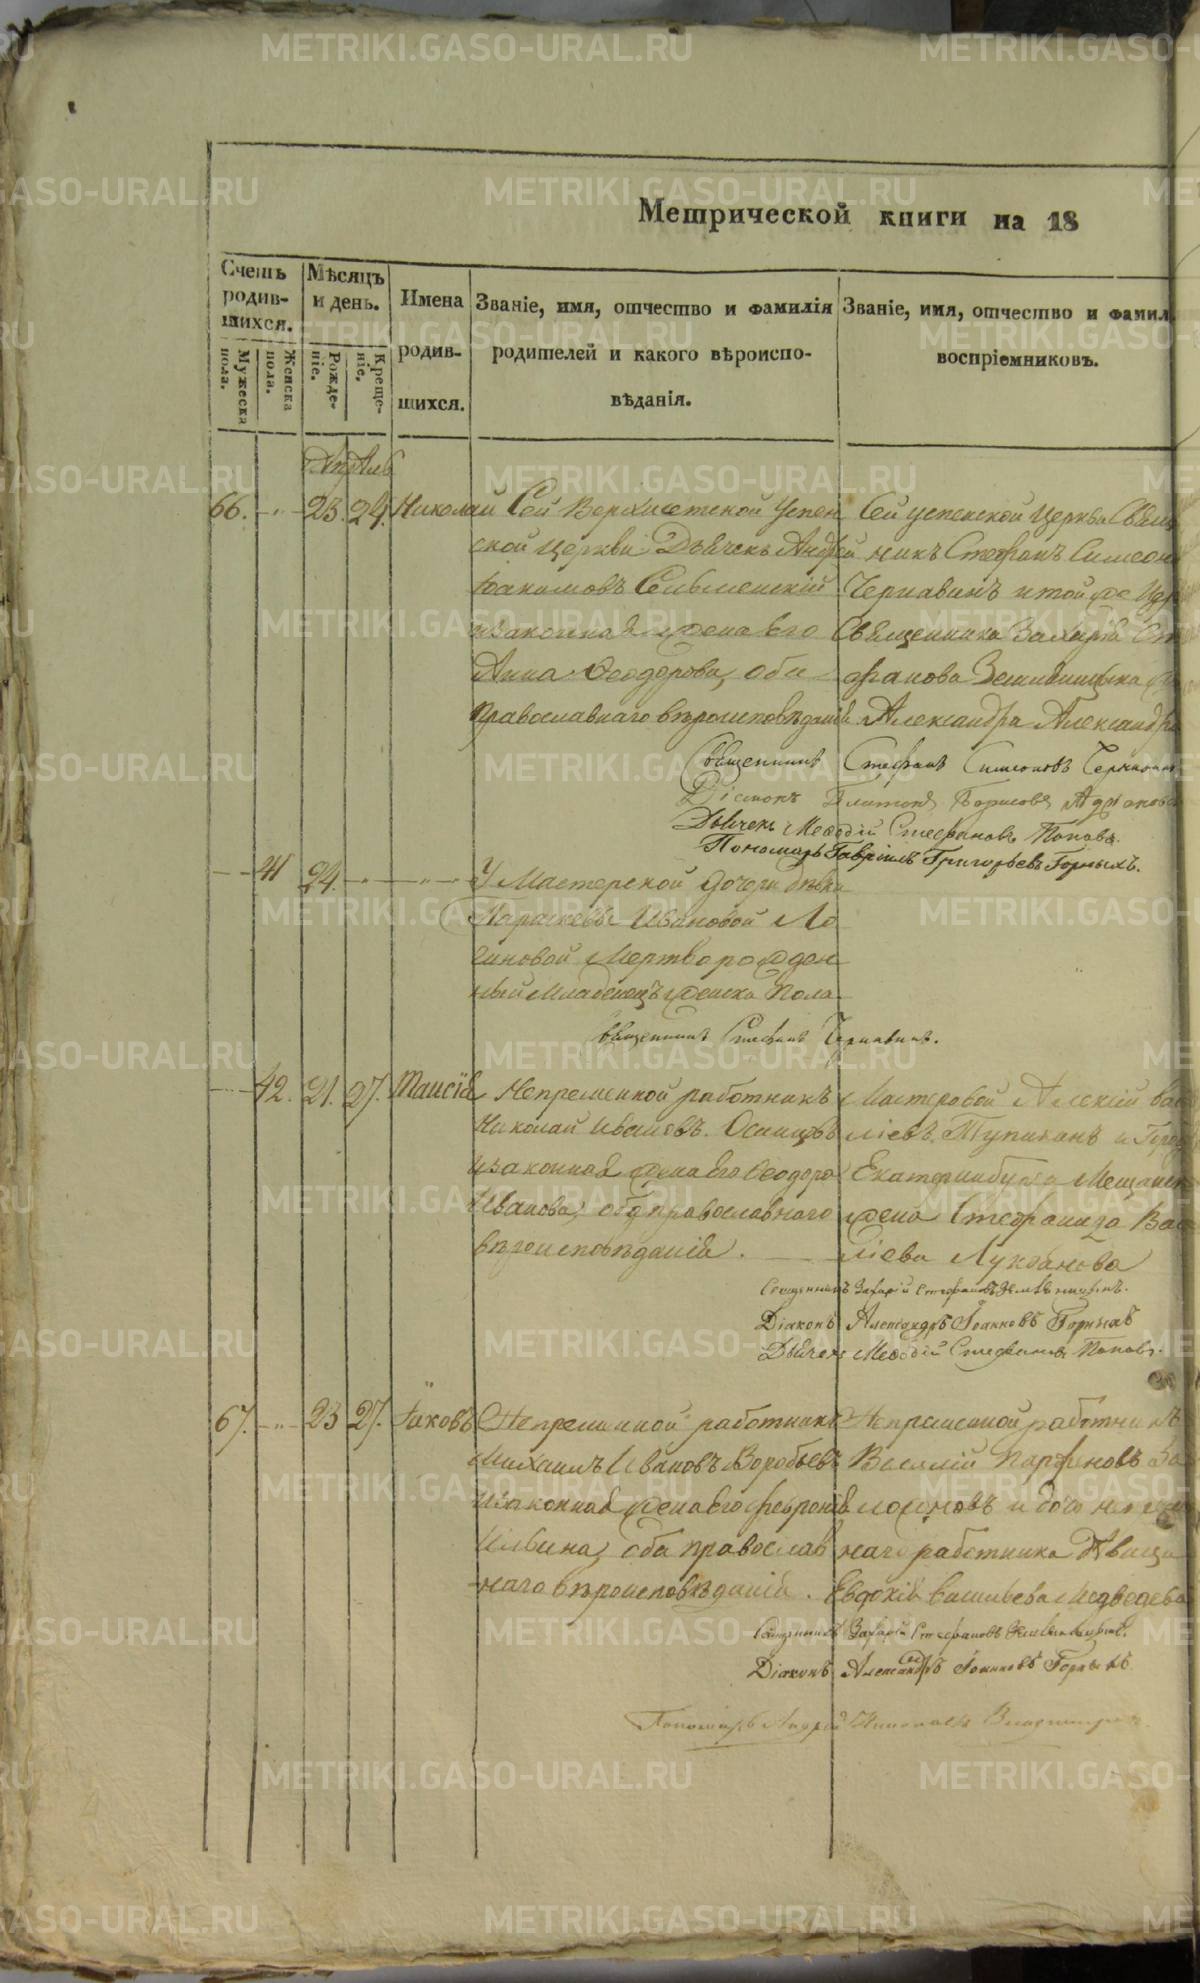 Метрической книги на 18
Счетъ родив-шихся.
Мужеска пола.
Женска пола.
Мѣсяцъ и день.
Рожде-ніе.
Креще-ніе.
Имена родив-шихся.
Званіе, имя, отчество и фамилія
родителей и какого вѣроиспо-
вѣданія.
Званіе, имя, отчество и фамил
воспріемниковъ.
Апрѣль
66. 23. 24. Николай
Сей Верхисетской Успен
ской церкви Дьячекъ Андрей
Іоакимовъ Сельменскій
и законная жена его
Анна Феодорова, оба
православнаго вѣроисповѣданія
Сей успенской церкви Свящ
никъ Стефанъ Симеон
Чернавинъ и той же цер
Священника Захарія Ст
фанова Земляницына
Александра Александр
Священникъ Стефанъ Симеоновъ Чернавин
Діаконъ Платонъ Борисовъ
Дьячекъ Меѳодій Стефановъ Поповъ.
Пономарь Гавріилъ Григорьевъ Горныхъ.
41 24.
У Мастерской дочери дѣвки
Параскевы Ивановой Ло
гиновой Мертворожден
ный младенецъ женска пола
Священникъ Стефанъ Чернавинъ.
42. 21. 27. Таисія
Непременной работникъ
Николай Ивановъ. Осинцовъ
и законная жена его Феодора
Иванова, оба православнаго
вѣроисповѣданія.
Мастеровой Алексій Вас
ліевъ. Тупицынъ и Горо
Екатеринбурга Мещанск
жена Стефанида Вас
ліева Луканова
Священникъ Захарій Стефановъ Земляницынъ.
Діаконъ Александръ Іоанновъ Горныхъ
Дьячекъ Меѳодій Стефановъ Поповъ.
67. 23 27. Іаковъ
Непременной работникъ
Михаилъ Ивановъ Воробьевъ
и законная жена его Февронія
Ильина, оба православ
наго вѣроисповѣданія.
Непременной работникъ
Василій Парфеновъ
наго работника
Евдокія Васильева Медведева
Священникъ Захарій Стефановъ Земляницынъ.
Діаконъ Александръ Іоанновъ Горныхъ
Пономарь Андрей Николаевъ
METRIKI.GASO-URAL.RU